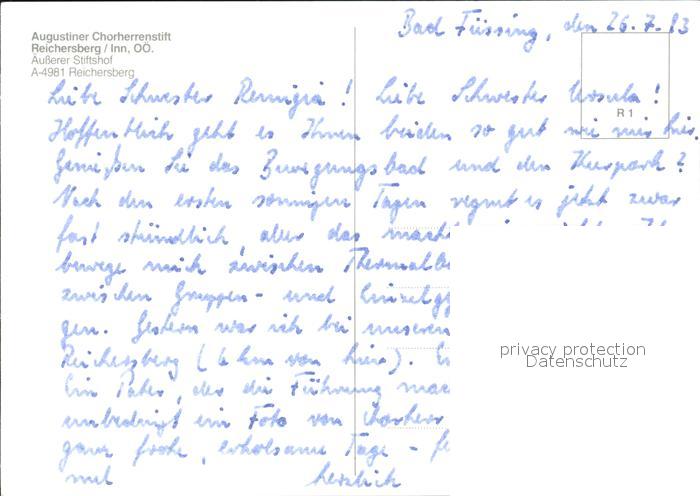 Augustiner Chorherrenstift
Reichersberg / Inn, OÖ.
Äußerer Stiftshof
A-4981 Reichersberg
R 1
Bad Füssing, den 26.7.83
Liebe Schwester Remigia! Liebe Schwester Ursula!
Hoffentlich geht es Ihnen beiden so gut wie mir hier.
Genießen Sie das Bewegungsbad und den Kurpark?
Nach den ersten sonnigen Tagen regnet es jetzt zwar
fast stündlich, aber das macht
bewege mich zwischen
zwischen Gruppen- und
gen. Gestern war ich bei unseren
Reichersberg (6 km von hier).
Ein Pater, der die Führung
unbedingt ein Foto von
ganz frohe, erholsame Tage -
mel herzlich
privacy protection
Datenschutz